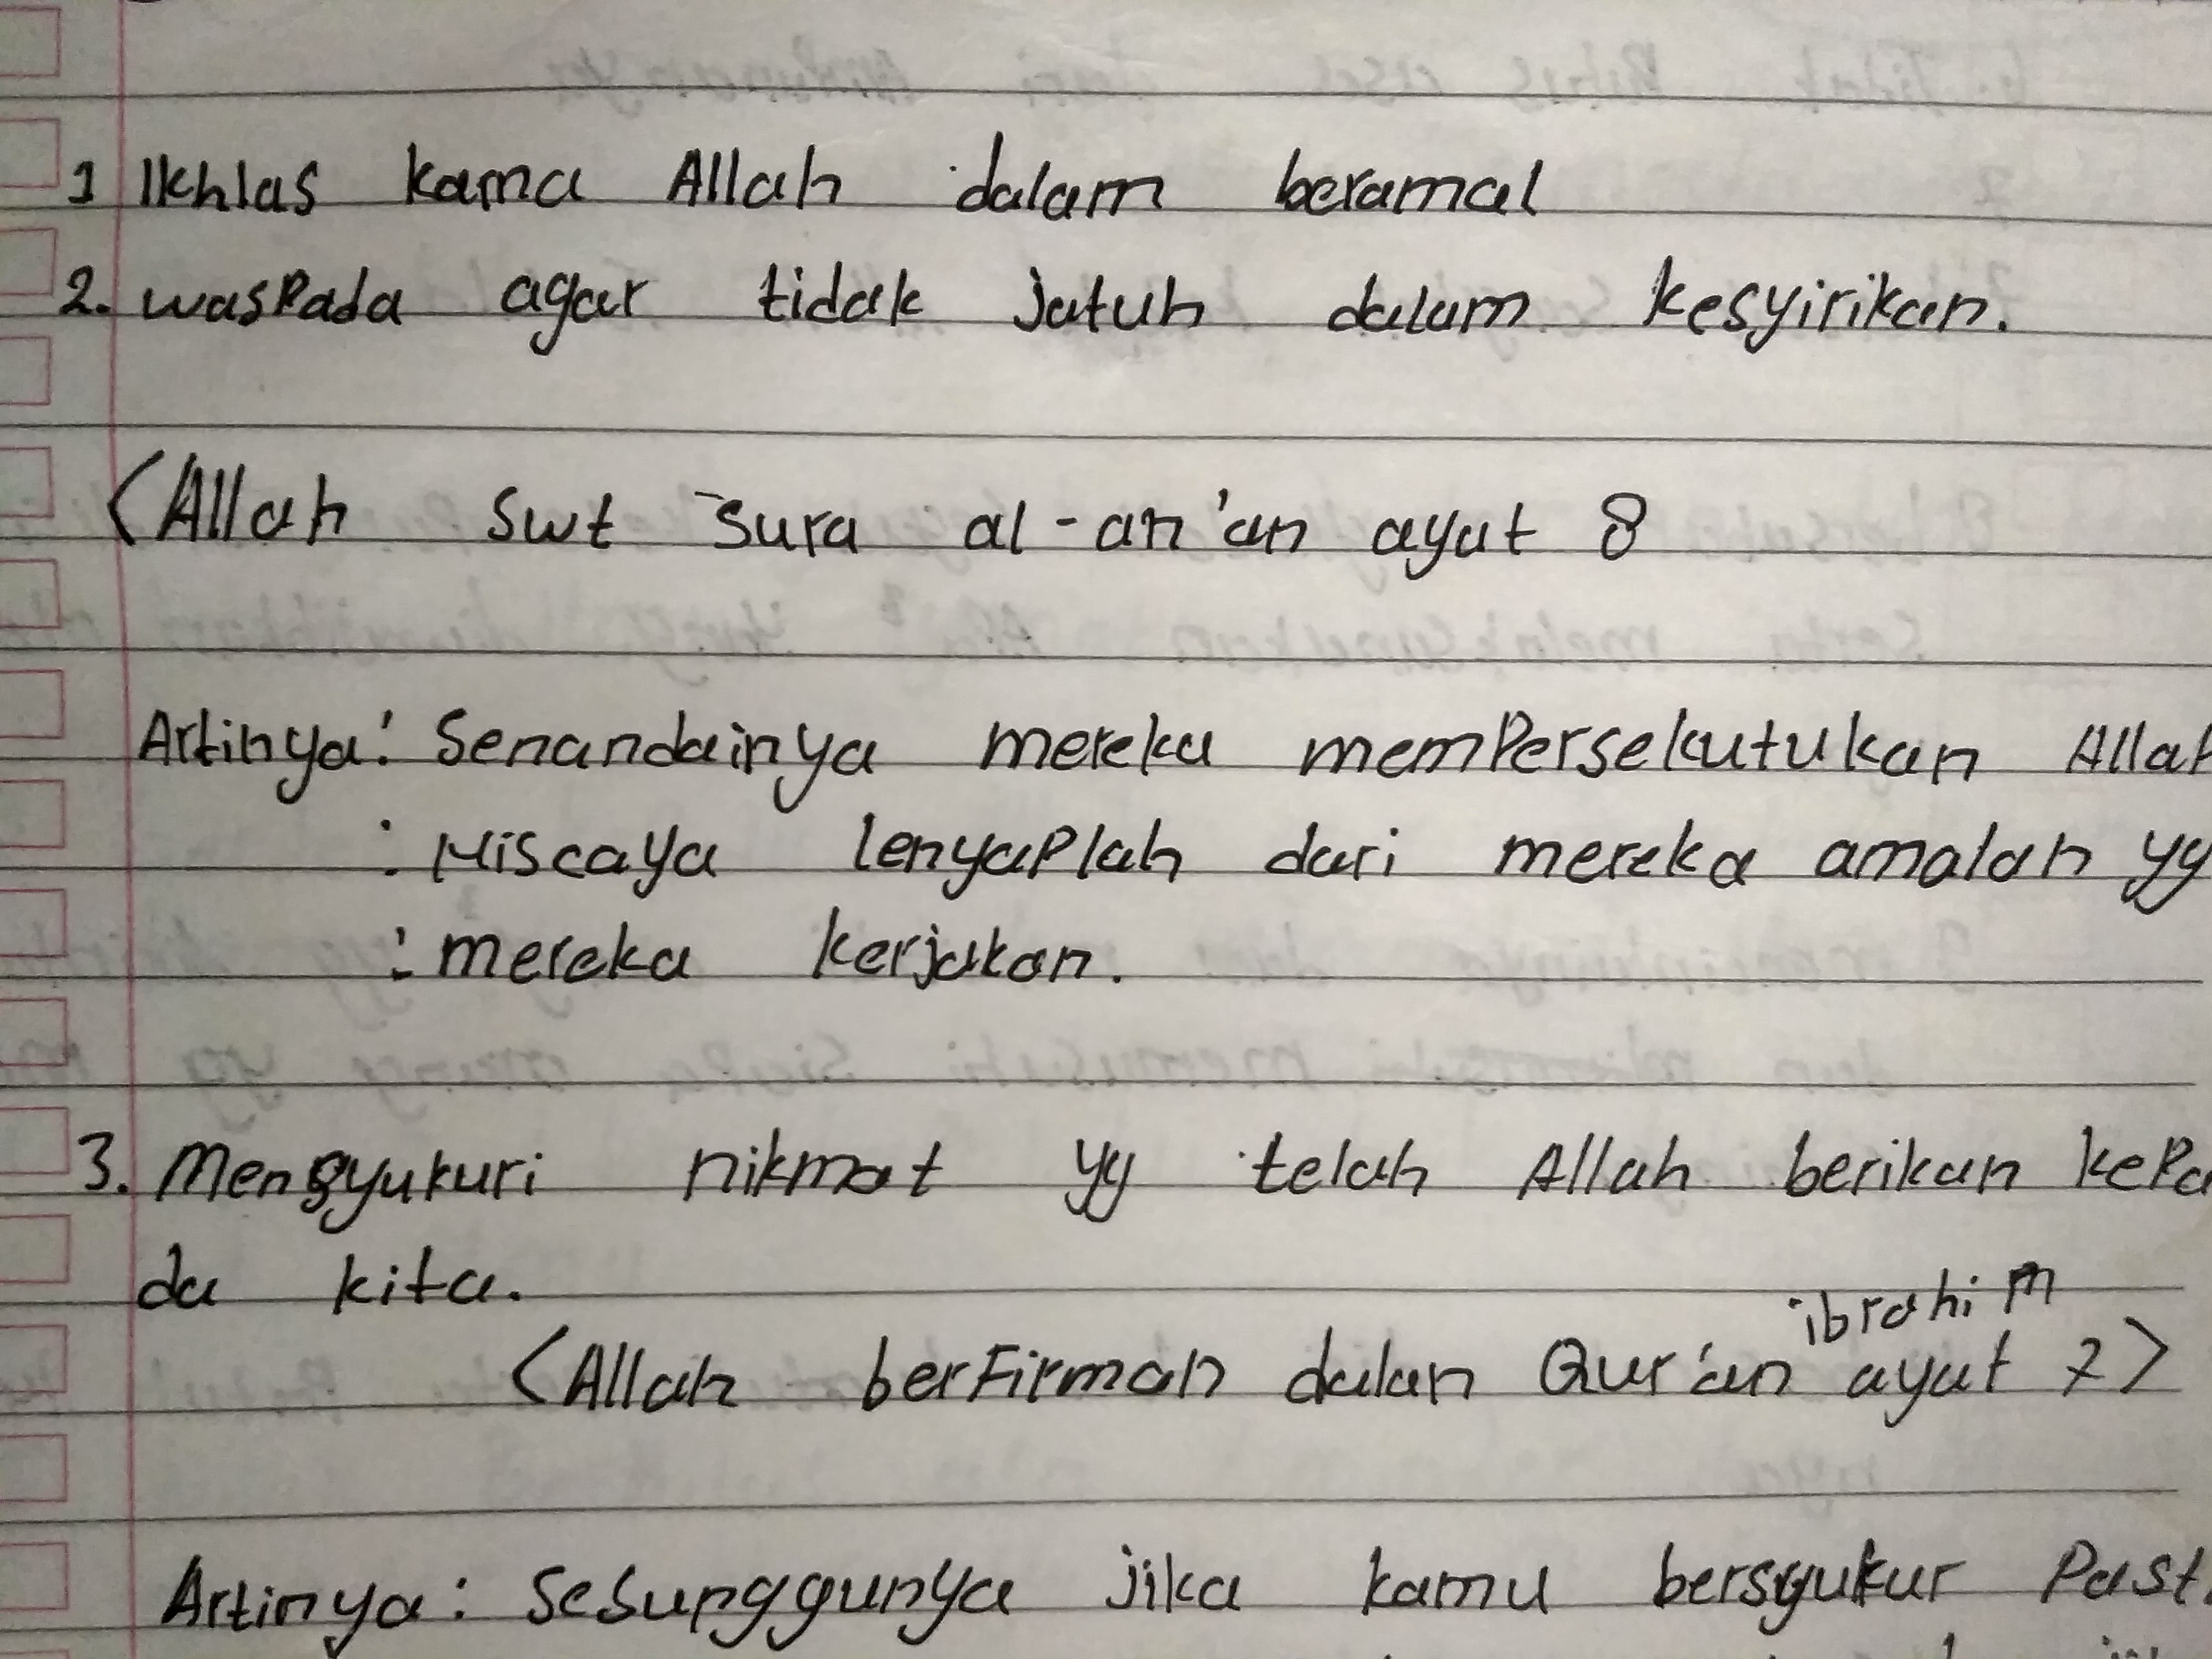 1 Ikhlas kama Allah dalam beramal
2. wasPada agar tidak jatuh dalam kesyirikan.
(Allah swt sura al-an'an ayat 8
Artinya: Senandainya mereka memPersekutukan Allah
: Niscaya lenyaPlah dari mereka amalan yg
: mereka kerjakan.
3. Mengyukuri nikmat yg telah Allah berikan kePa
da kita.
ibrahim
<Allah berFirman dalan Qur'an ayat 7>
Artinya: Sesunggunya jika kamu bersyukur Past